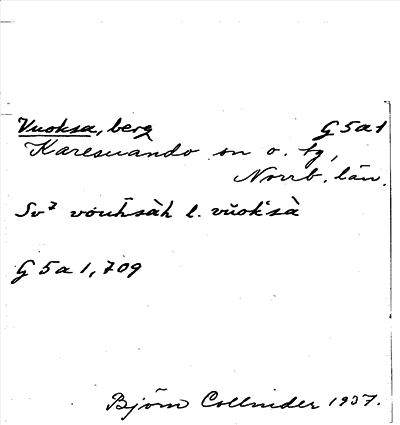 Vuoksa, berg G 5 a 1
Karesuando sn o. tg,
Norrb. län.
Sv⁷ vŏuħsàh l. vŭokˋsà
G 5 a 1, 709
Björn Collinder 1937.